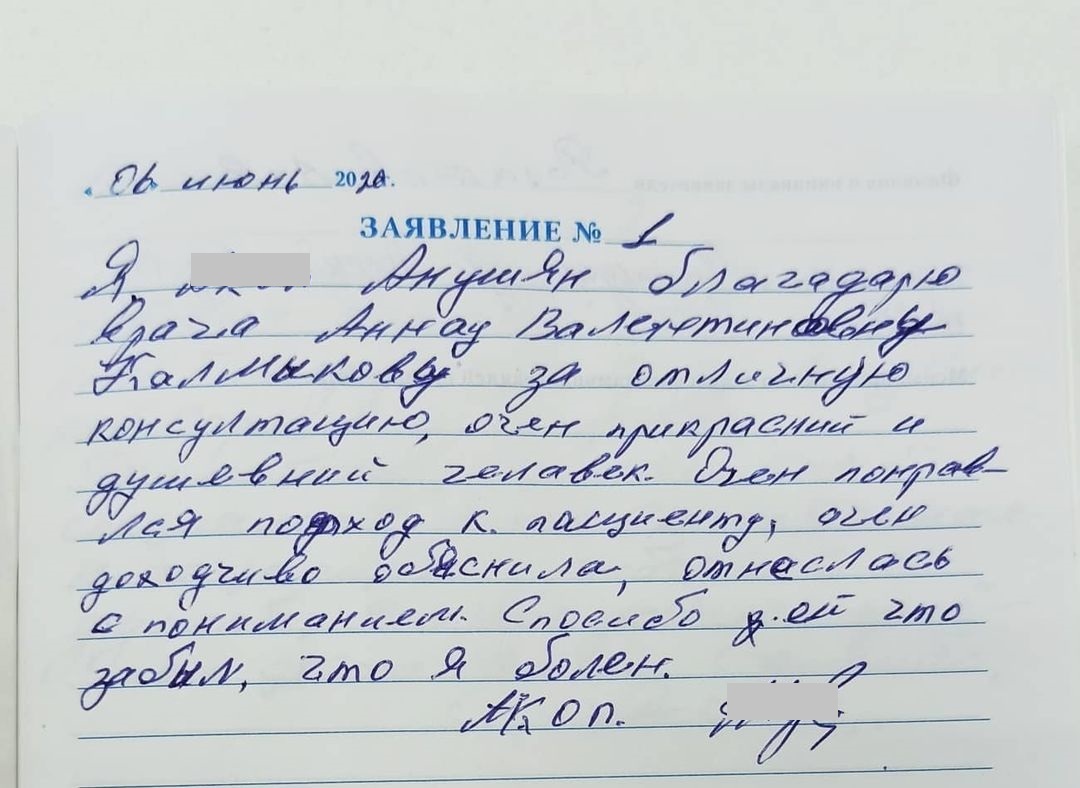 « 06 » июнь 2020г.
ЗАЯВЛЕНИЕ № 1
Я, Анушян благадарю
врача Аннау Валетинаовну
Калмыкову за отличную
консултацию, очен прикрасний и
душевний челавек. Очен понрав-
лся подход к. пасциенту, очен
доходчиво обяснила, отнеслась
с пониманием. Спосибо ей что
забыл, что я болен.
Акоп.